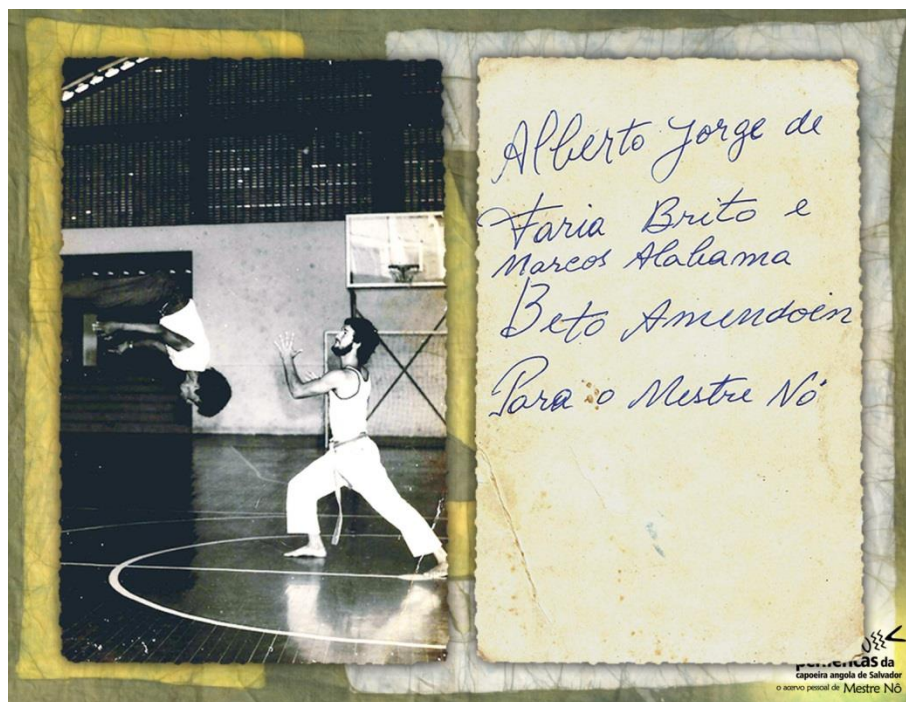 Alberto Jorge de
Faria Brito e
Marcos Alabama
Beto Amendoin
Para o Mestre Nô
periféricas da
capoeira angola de Salvador
o acervo pessoal de Mestre Nô